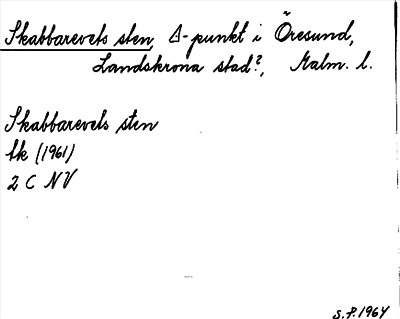 Skabbarevets sten, Δ-punkt i Öresund,
Landskrona stad?, Malm. l.
Skabbarevets sten
tk (1961)
2 C NV
S.P. 1964